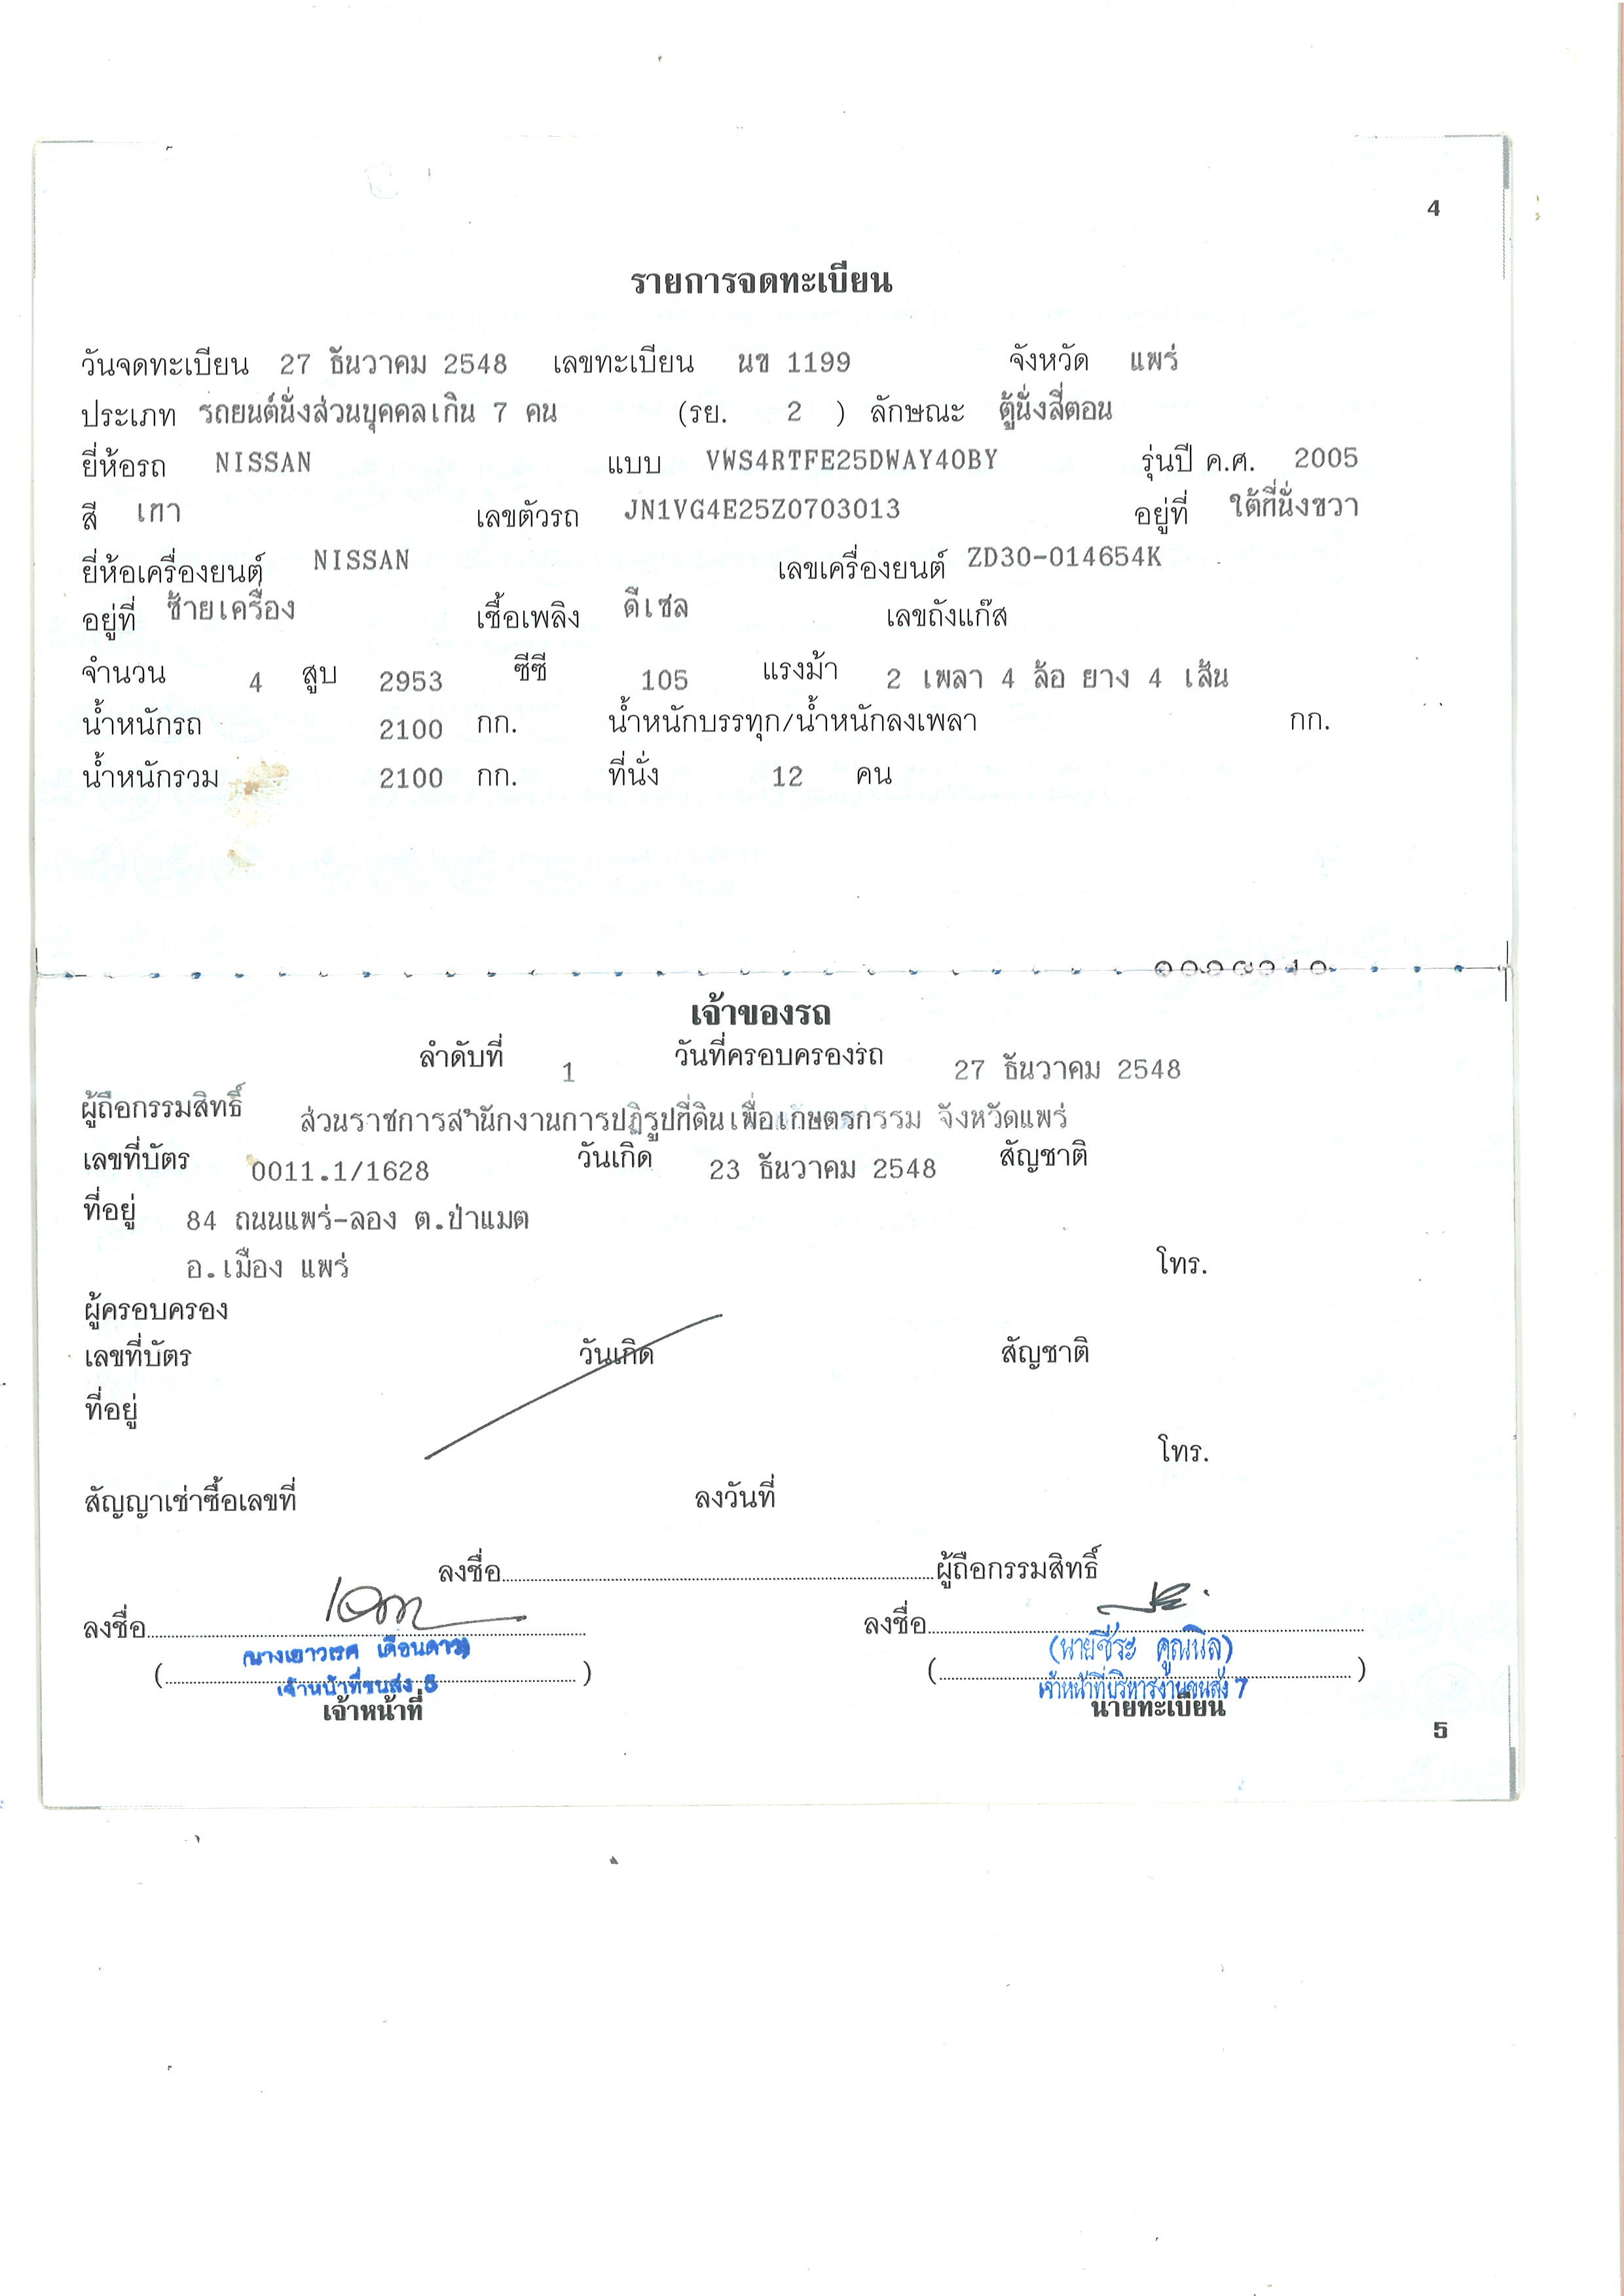 4
รายการจดทะเบียน
วันจดทะเบียน 27 ธันวาคม 2548 เลขทะเบียน นข 1199 จังหวัด แพร่
ประเภท รถยนต์นั่งส่วนบุคคลเกิน 7 คน (รย. 2 ) ลักษณะ ตู้นั่งสี่ตอน
ยี่ห้อรถ NISSAN แบบ VWS4RTFE25DWAY40BY รุ่นปี ค.ศ. 2005
สี เทา เลขตัวรถ JN1VG4E25Z0703013 อยู่ที่ ใต้ที่นั่งขวา
ยี่ห้อเครื่องยนต์ NISSAN เลขเครื่องยนต์ ZD30-014654K
อยู่ที่ ซ้ายเครื่อง เชื้อเพลิง ดีเซล เลขถังแก๊ส
จำนวน 4 สูบ 2953 ซีซี 105 แรงม้า 2 เพลา 4 ล้อ ยาง 4 เส้น
น้ำหนักรถ 2100 กก. น้ำหนักบรรทุก/น้ำหนักลงเพลา กก.
น้ำหนักรวม 2100 กก. ที่นั่ง 12 คน
เจ้าของรถ
ลำดับที่ 1 วันที่ครอบครองรถ 27 ธันวาคม 2548
ผู้ถือกรรมสิทธิ์ ส่วนราชการสำนักงานการปฏิรูปที่ดินเพื่อเกษตรกรรม จังหวัดแพร่
เลขที่บัตร 0011.1/1628 วันเกิด 23 ธันวาคม 2548 สัญชาติ
ที่อยู่ 84 ถนนแพร่-ลอง ต.ป่าแมต
อ.เมือง แพร่ โทร.
ผู้ครอบครอง
เลขที่บัตร วันเกิด สัญชาติ
ที่อยู่
โทร.
สัญญาเช่าซื้อเลขที่ ลงวันที่
ลงชื่อ ผู้ถือกรรมสิทธิ์
ลงชื่อ ลงชื่อ
(นางเยาวเรศ เดือนดาว) (นายชีระ คูณนิล)
เจ้าหน้าที่ขนส่ง 5 เจ้าหน้าที่บริหารงานขนส่ง 7
เจ้าหน้าที่ นายทะเบียน
5